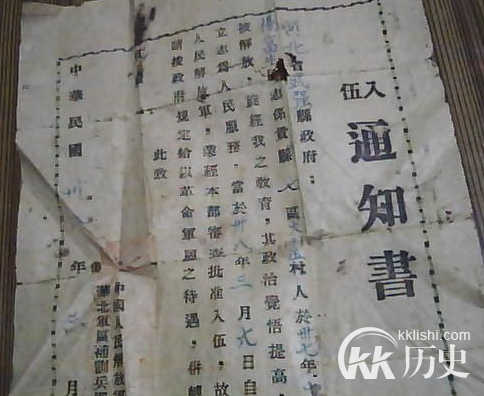 入伍
通知書
河北省武強縣政府：
楊富 同志係貴縣七區 村人於卅七年
被解放，旋經我之教育，其政治覺悟提高，
立志爲人民服務，當於卅八年三月九日自
人民解放軍，業經本部審查批准入伍，故
請按政府規定給以革命軍屬之待遇，併轉
此致
中國人民解放
華北軍區補訓兵
中華民國卅 年三月
kklishi.com
KK历史